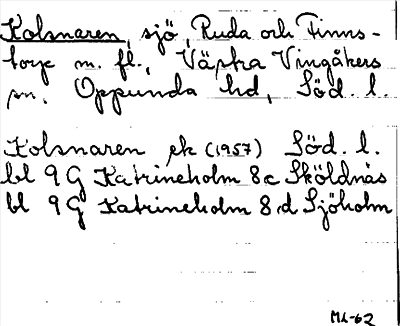 Kolsnaren, sjö, Ruda och Finns-
torp m. fl., Västra Vingåkers
sn. Oppunda hd, Söd. l.
Kolsnaren ek (1957) Söd. l.
bl 9 G Katrineholm 8c Sköldnäs
bl 9 G Katrineholm 8d Sjöholm
ML-62